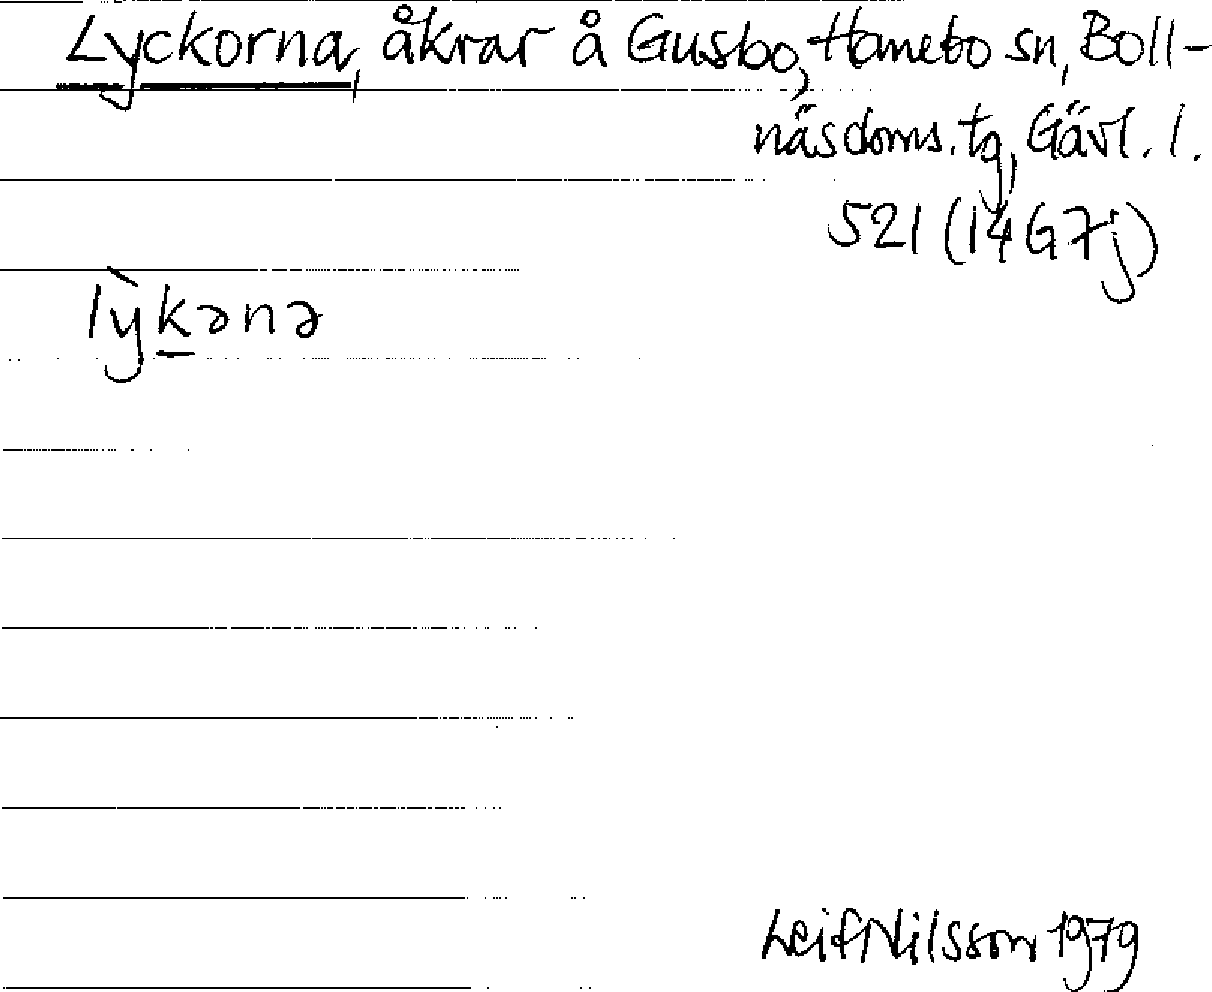 Lyckorna, åkrar å Gusbo, Hanebo sn, Boll-
näs doms. tg, Gävl. l.
521 (14G7j)
lỳkənə
Leif Nilsson 1979